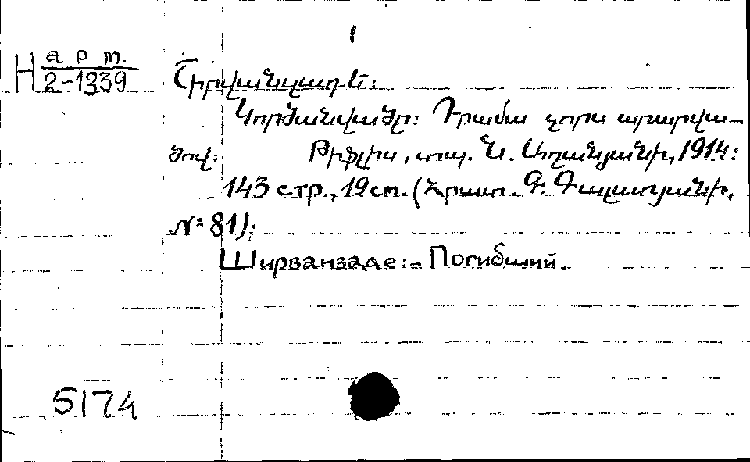 1
Н арт.
2-1339
Շիրվանզադե:
Կործանվածը: Դրամա չորս արարվա-
ծով: Թիֆլիս, տպ. Ն. Աղանյանի, 1914:
143 стр., 19 cm. (Հրատ. Գ. Գալստյանի,
№ 81):
Ширванзаде:- Погибший.
5174